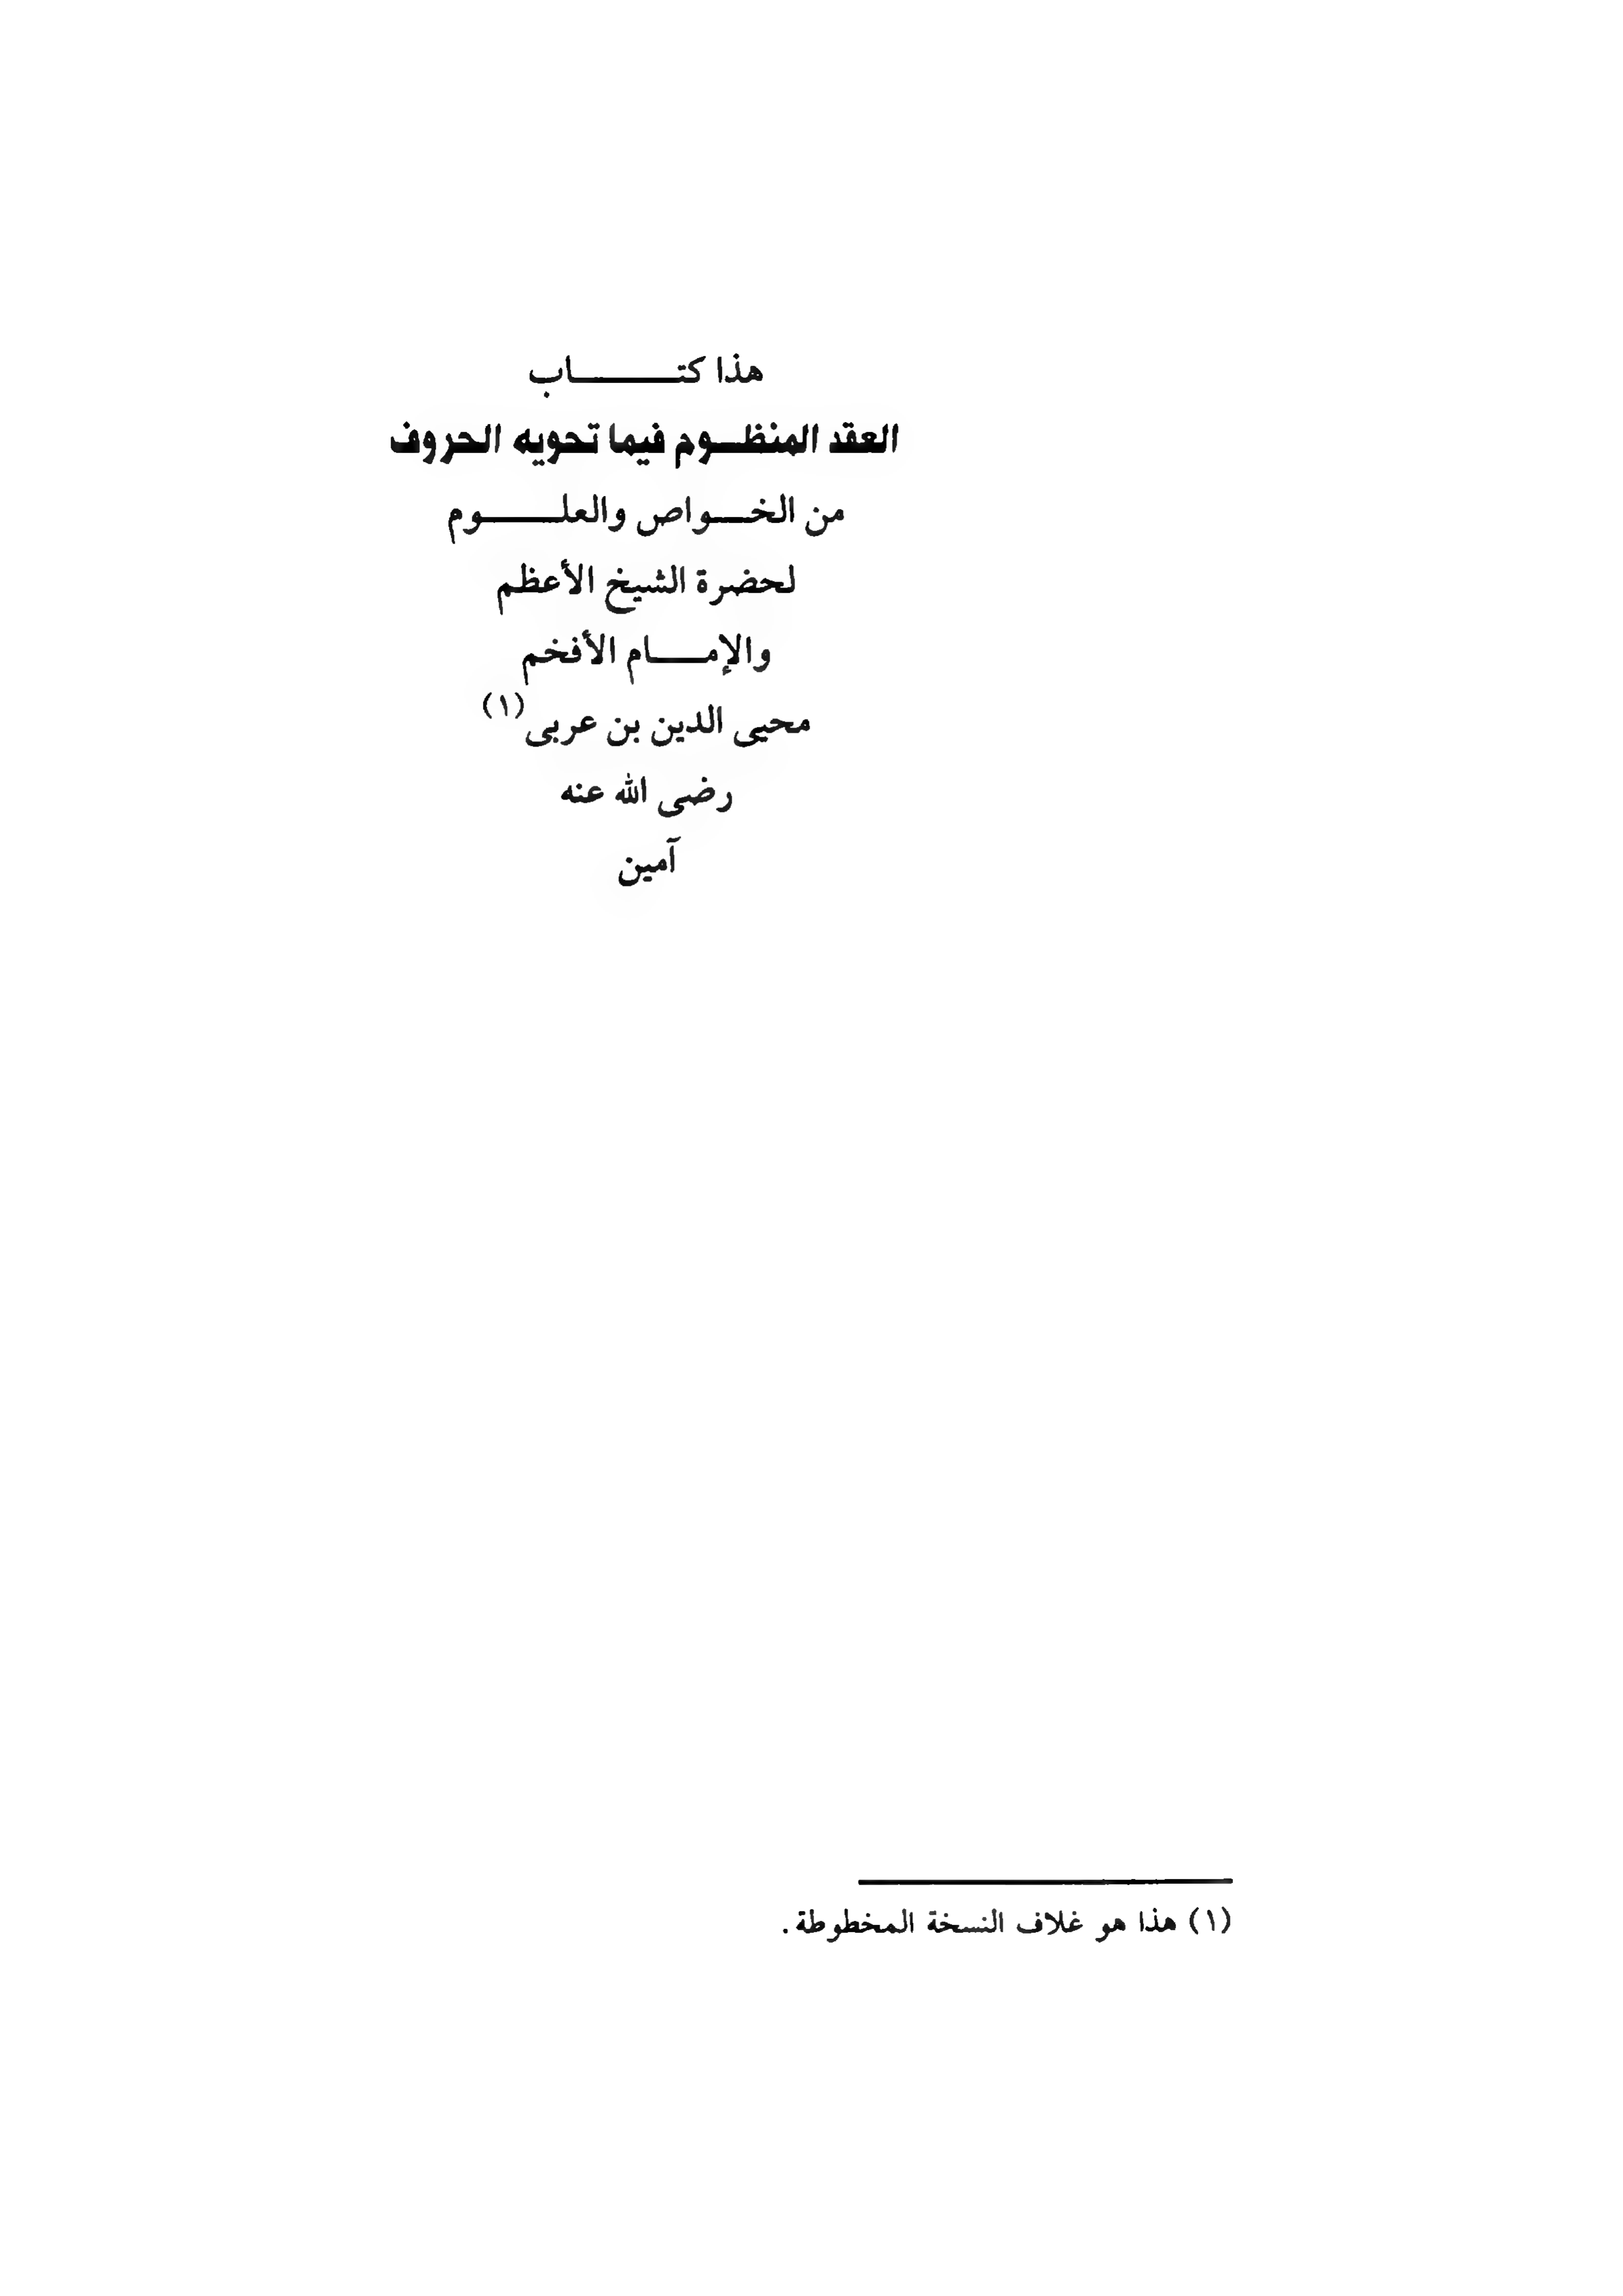 هذا كتاب
العقد المنظوم فيما تحويه الحروف
من الخواص والعلوم
لحضرة الشيخ الأعظم
والإمام الأفخم
محيى الدين بن عربى (١)
رضى الله عنه
آمين
(١) هذا هو غلاف النسخة المخطوطة .